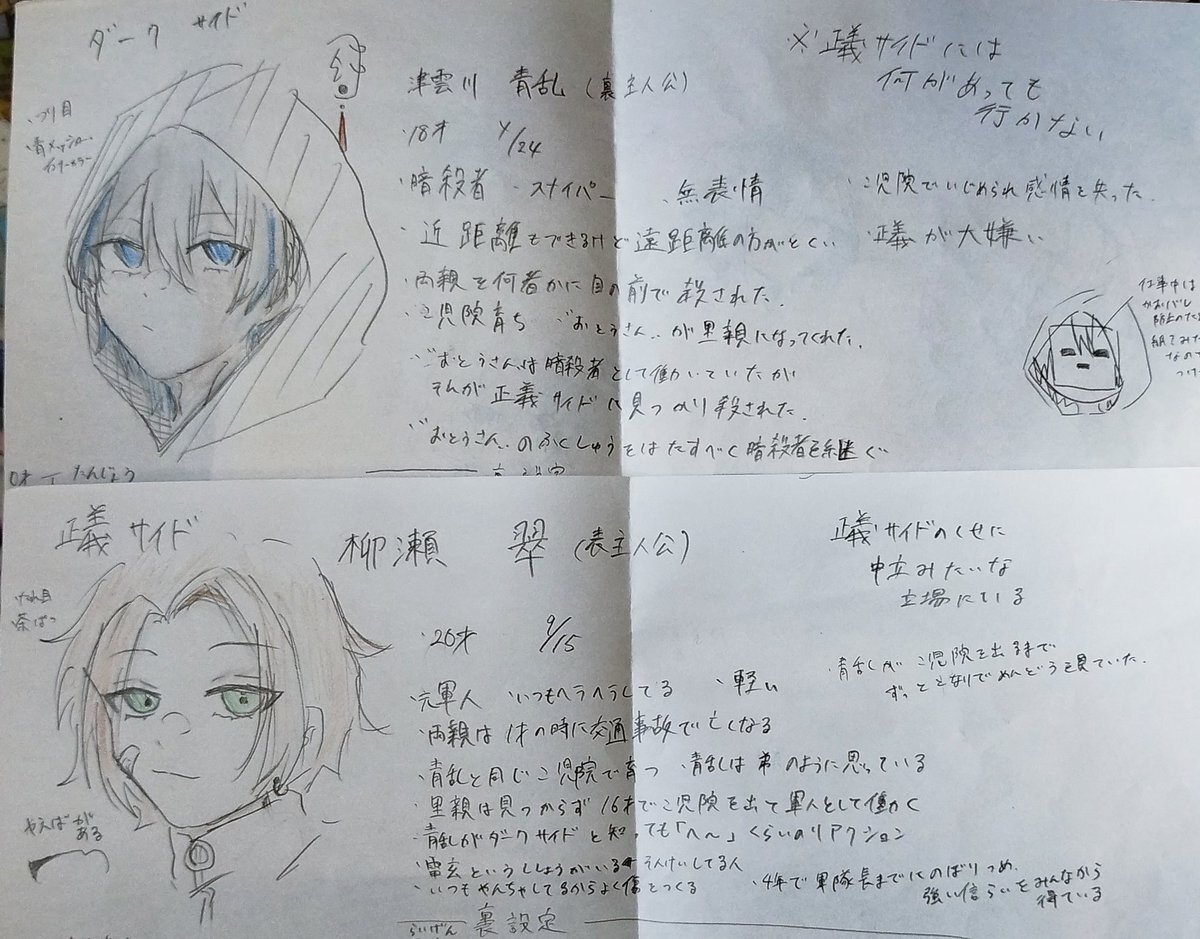 ダーク サイド
・つり目
・青メッシュ
津雲川 青乱 (裏主人公)
※正義サイドには
何があっても
行かない
・18才
・暗殺者 ・スナイパー ・無表情 ・こ児院でいじめられ感情を失った.
・近距離もできるけど遠距離の方がとくい ・正義が大嫌い
・両親を何者かに目の前で殺された.
・こ児院育ち “おとうさん„が里親になってくれた.
・“おとうさん„は暗殺者として働いていたが
それが正義サイドに見つかり殺された.
・“おとうさん„のふくしゅうをはたすべく暗殺者を継ぐ
仕事中は
かおバレ
防止のため
たんじょう
正義 サイド
柳瀬 翠 (表主人公)
正義サイドのくせに
中立みたいな
立場にいる
たれ目
茶ぱつ
・20才 9/15
・元軍人 ・いつもヘラヘラしてる ・軽い
・青乱がこ児院を出るまで
ずっととなりでめんどうを見ていた.
・両親は1才の時に交通事故で亡くなる
・青乱と同じこ児院で育つ ・青乱は弟のように思っている
・里親は見つからず16才でこ児院を出て軍人として働く
・青乱がダークサイドと知っても「へ〜」くらいのリアクション
・雷玄というししょうがいる←そんけいしてる人
・いつもやんちゃしてるからよく傷をつくる
・4年で軍隊長までにのぼりつめ.
強い信らいをみんなから
得ている
やえばが
ある
らいげん
裏設定